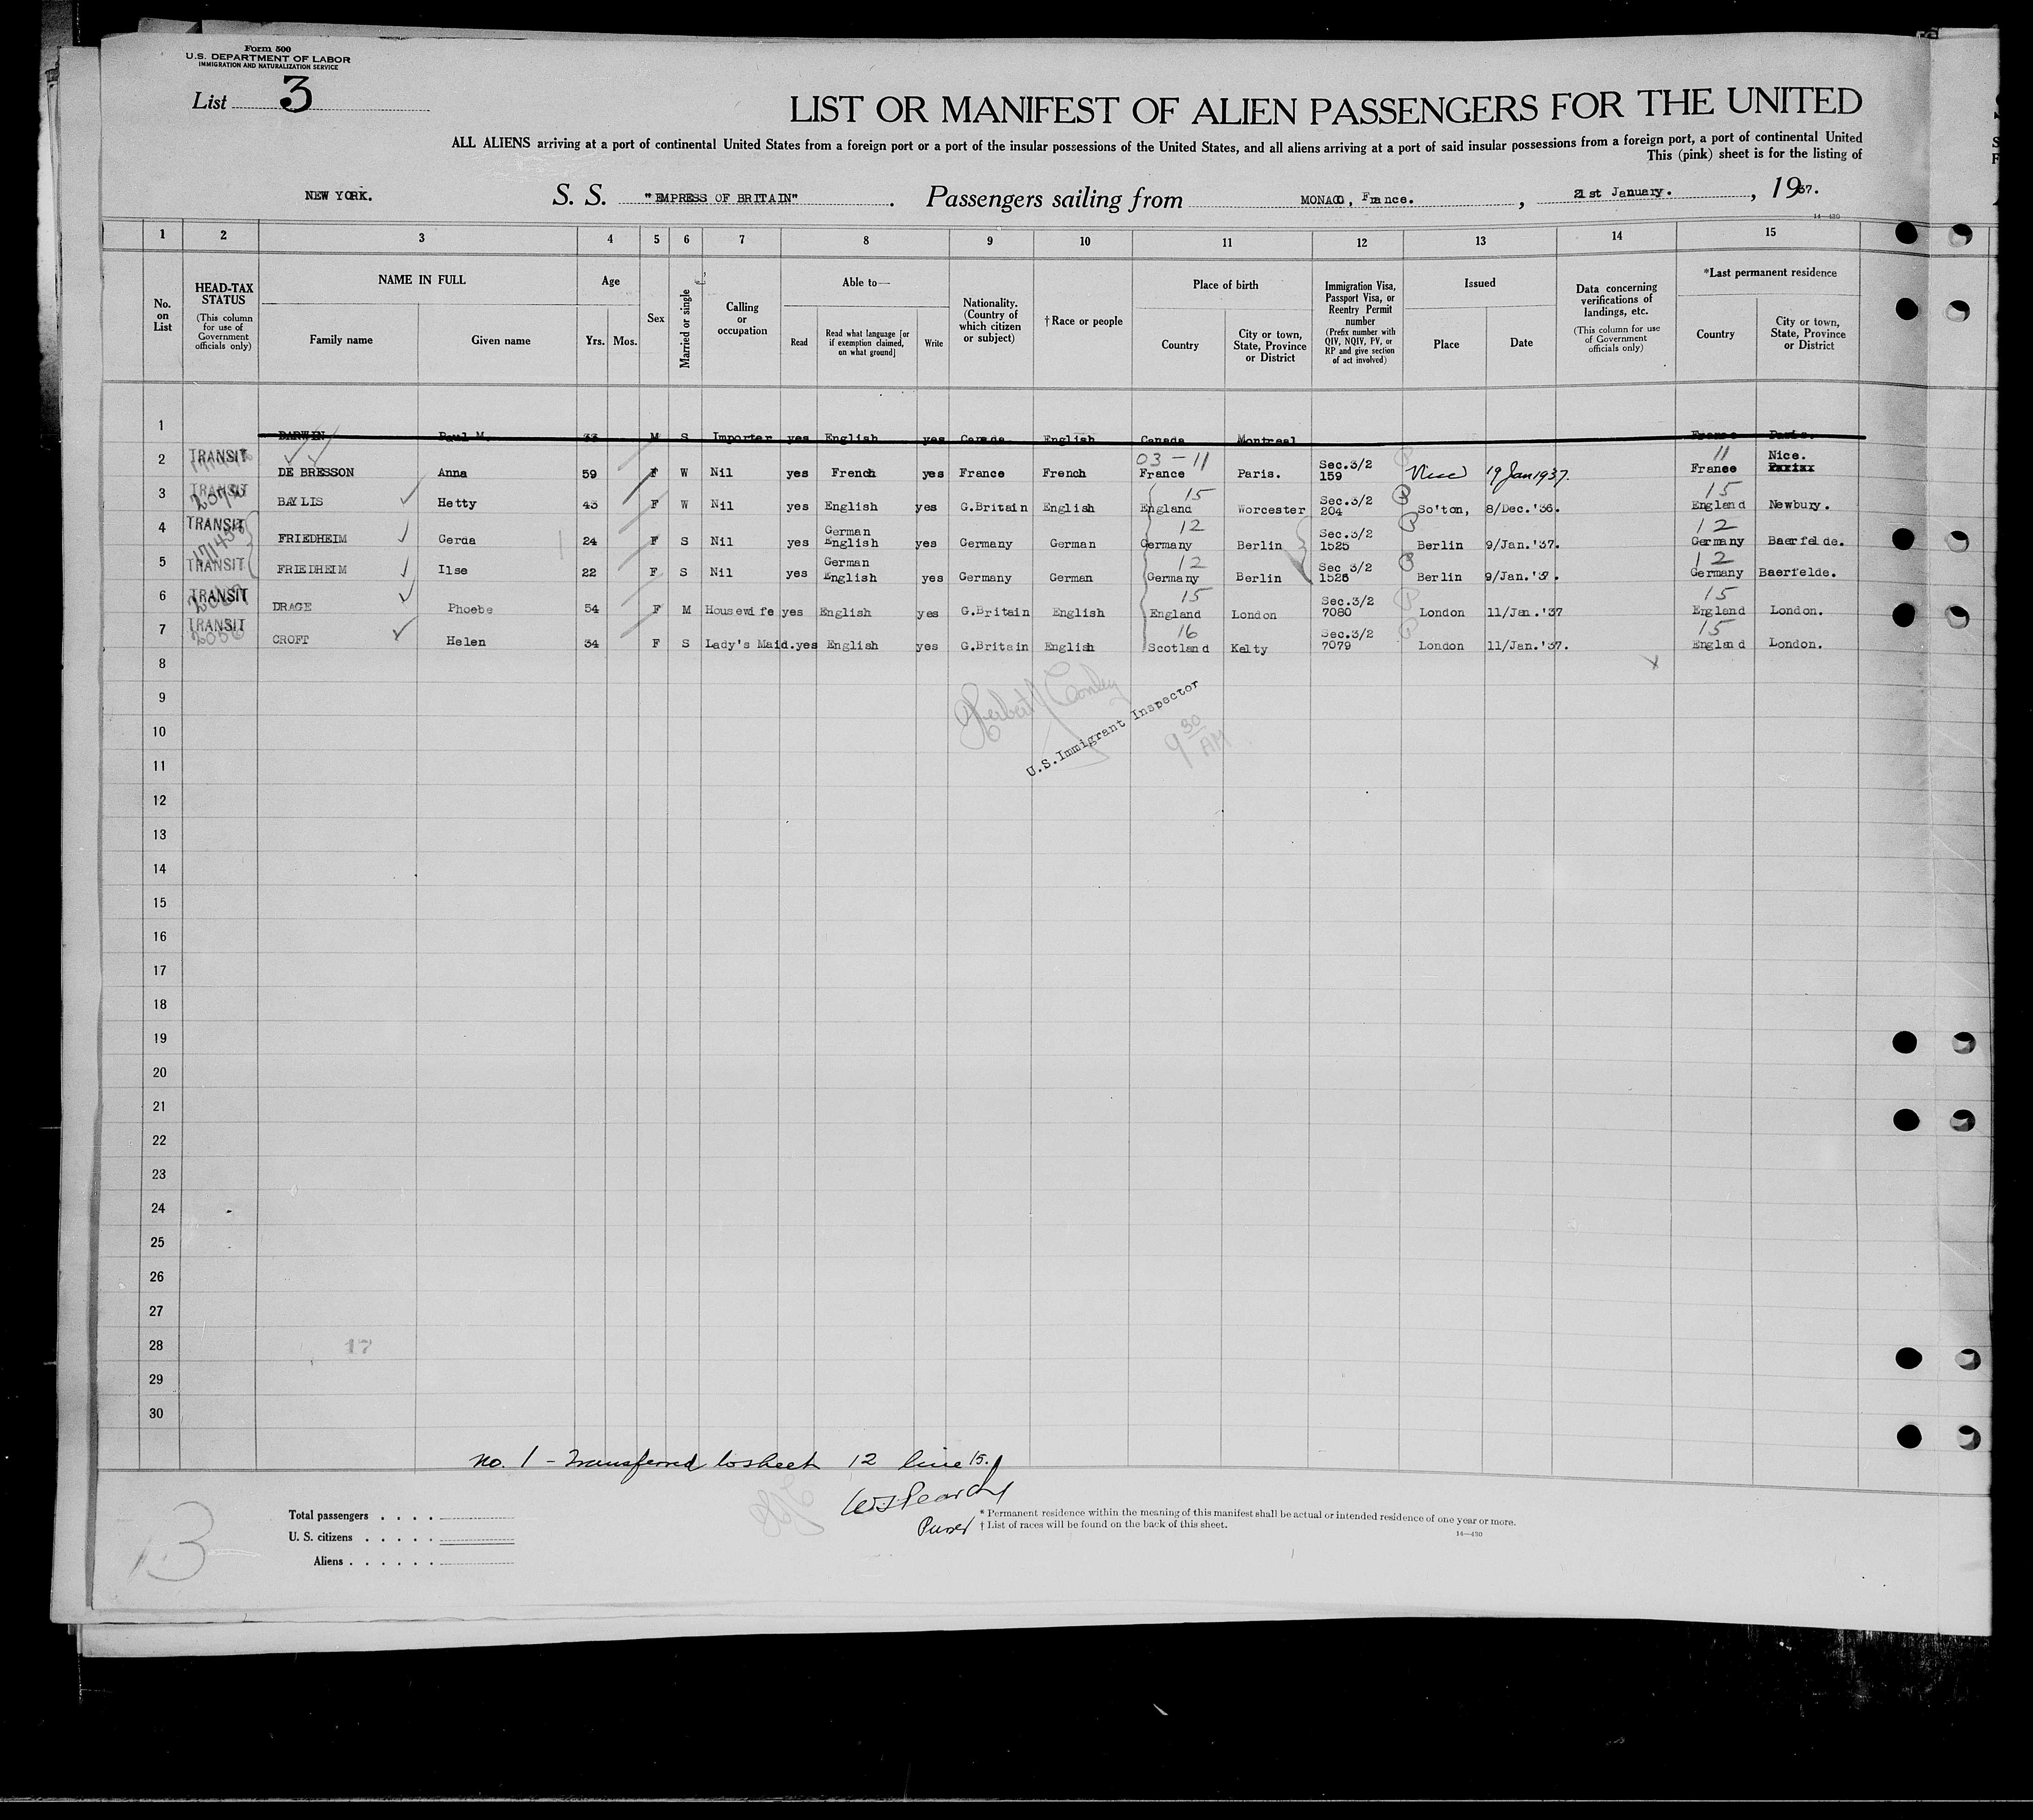 Form 500
U.S. DEPARTMENT OF LABOR
IMMIGRATION AND NATURALIZATION SERVICE
List 3
LIST OR MANIFEST OF ALIEN PASSENGERS FOR THE UNITED
ALL ALIENS arriving at a port of continental United States from a foreign port or a port of the insular possessions of the United States, and all aliens arriving at a port of said insular possessions from a foreign port, a port of continental United
This (pink) sheet is for the listing of
NEW YORK. S. S. "EMPRESS OF BRITAIN". Passengers sailing from MONACO, France. , 21st January. , 1937.
14—430
1 2 3 4 5 6 7 8 9 10 11 12 13 14 15
No. on List
HEAD-TAX STATUS
(This column for use of Government officials only)
NAME IN FULL
Family name Given name
Age
Yrs. Mos.
Sex
Married or single
Calling or occupation
Able to—
Read
Read what language [or if exemption claimed, on what ground]
Write
Nationality. (Country of which citizen or subject)
†Race or people
Place of birth
Country
City or town, State, Province or District
Immigration Visa, Passport Visa, or Reentry Permit number
(Prefix number with QIV, NQIV, PV, or RP and give section of act involved)
Issued
Place Date
Data concerning verifications of landings, etc.
(This column for use of Government officials only)
*Last permanent residence
Country
City or town, State, Province or District
1 DARWIN Paul M. 33 M S Importer yes English yes Canada English Canada Montreal France Paris.
03-11 11 Nice.
2 TRANSIT DE BRESSON Anna 59 F W Nil yes French yes France French France Paris. Sec.3/2 159 Nice 19 Jan 1937. France
15 15
3 TRANSIT BAYLIS Hetty 43 F W Nil yes English yes G.Britain English England Worcester Sec.3/2 204 So'ton, 8/Dec.'36. England Newbury.
12 12
4 TRANSIT FRIEDHEIM Gerda 24 F S Nil yes German English yes Germany German Germany Berlin Sec.3/2 1525 Berlin 9/Jan.'37. Germany Baerfelde.
12 12
5 TRANSIT FRIEDHEIM Ilse 22 F S Nil yes German English yes Germany German Germany Berlin Sec 3/2 1526 Berlin 9/Jan.'3. Germany Baerfelde.
15 15
6 TRANSIT DRAGE Phoebe 54 F M Housewife yes English yes G.Britain English England London Sec.3/2 7080 London 11/Jan.'37 England London.
16 15
7 TRANSIT CROFT Helen 34 F S Lady's Maid. yes English yes G.Britain English Scotland Kelty Sec.3/2 7079 London 11/Jan.'37. England London.
8
9
U.S.Immigrant Inspector
9 30 AM
10
11
12
13
14
15
16
17
18
19
20
21
22
23
24
25
26
27
28 17
29
30
No. 1 - Transferred to sheet 12 line 15.
Purser
Total passengers . . . .
U. S. citizens . . . . .
Aliens . . . . . .
* Permanent residence within the meaning of this manifest shall be actual or intended residence of one year or more.
† List of races will be found on the back of this sheet.
14—430
13